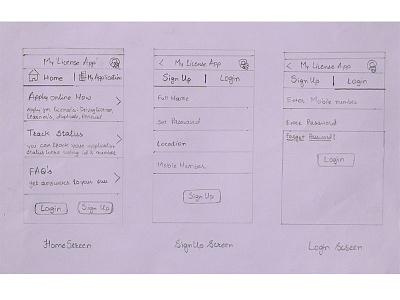 My License App
Home | My Application
Apply Online Now
Apply for License - Driving license,
Learner's, duplicate, Renewal
Track Status
you can track your application
status here using id & number
FAQ's
get answers to your
Login
Sign Up
Home Screen
My License App
Sign Up | Login
Full Name
Set Password
Location
Mobile Number
Sign Up
Sign Up Screen
My License App
Sign Up | Login
Enter Mobile number
Enter Password
Forgot Password?
Login
Login Screen